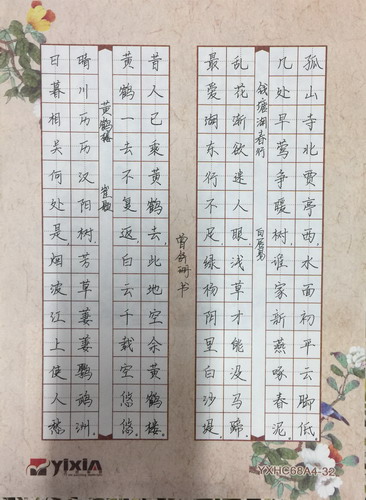 孤山寺北贾亭西，水面初平云脚低。
几处早莺争暖树，谁家新燕啄春泥。
钱塘湖春行 白居易
乱花渐欲迷人眼，浅草才能没马蹄。
最爱湖东行不足，绿杨阴里白沙堤。
曾 书
昔人已乘黄鹤去，此地空余黄鹤楼。
黄鹤一去不复返，白云千载空悠悠。
黄鹤楼 崔颢
晴川历历汉阳树，芳草萋萋鹦鹉洲。
日暮相吴何处是，烟波江上使人愁。
yixin
YXHC68A4-32